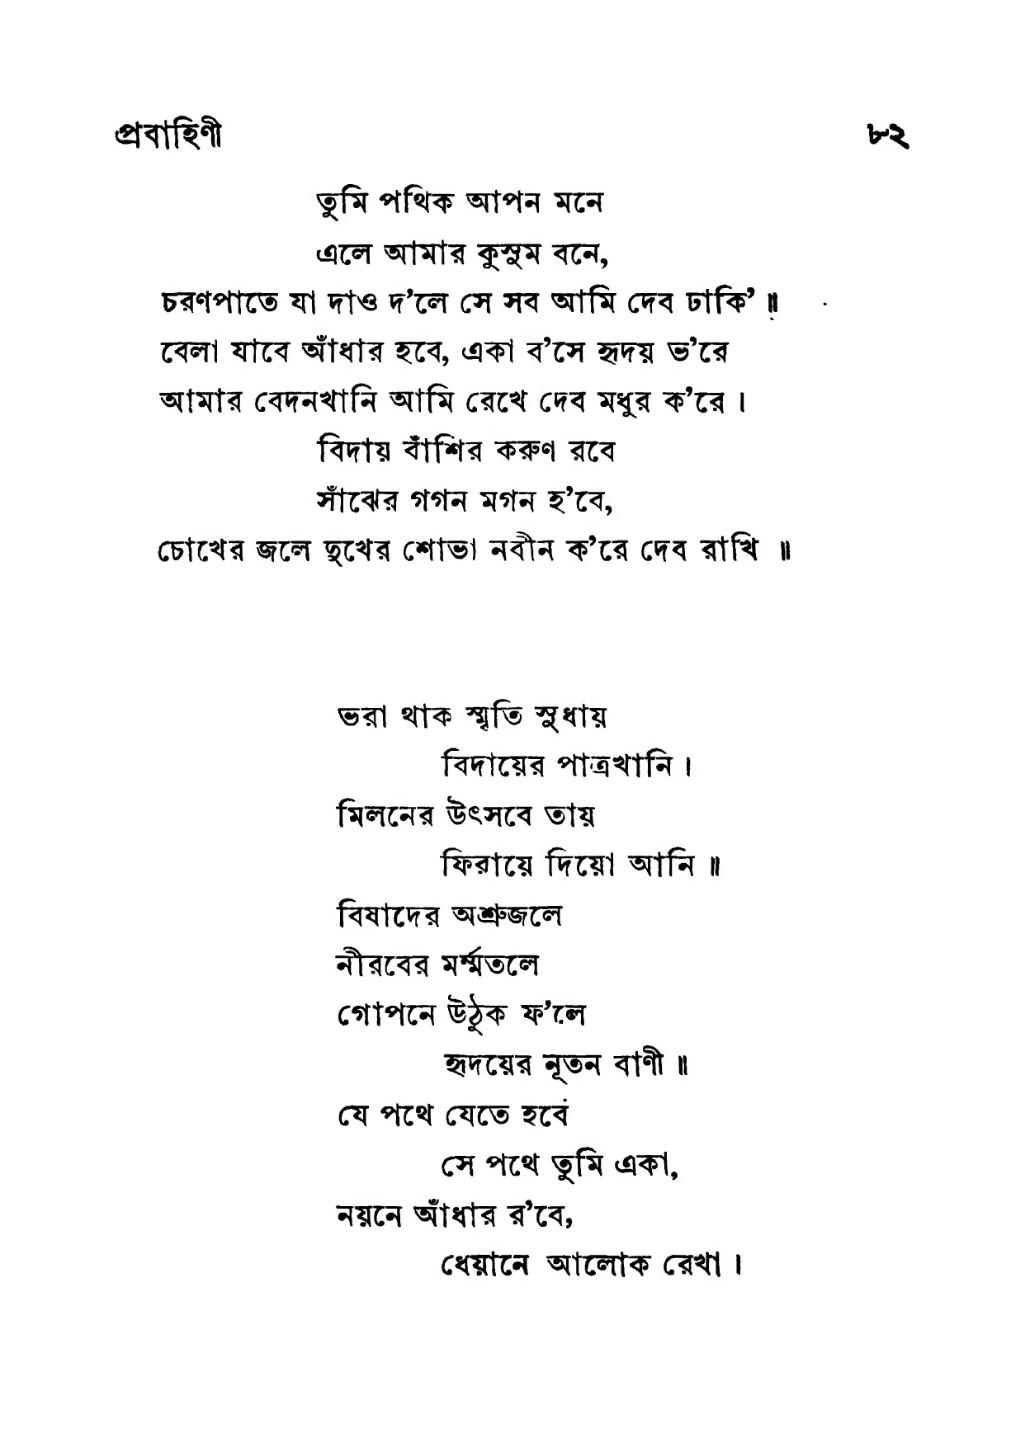 প্রবাহিণী ৮২
তুমি পথিক আপন মনে
এলে আমার কুসুম বনে,
চরণপাতে যা দাও দ’লে সে সব আমি দেব ঢাকি’॥
বেলা যাবে আঁধার হবে, একা ব’সে হৃদয় ভ’রে
আমার বেদনখানি আমি রেখে দেব মধুর ক’রে।
বিদায় বাঁশির করুণ রবে
সাঁঝের গগন মগন হ’বে,
চোখের জলে দুখের শোভা নবীন ক’রে দেব রাখি ॥
ভরা থাক স্মৃতি সুধায়
বিদায়ের পাত্রখানি।
মিলনের উৎসবে তায়
ফিরায়ে দিয়ো আনি॥
বিষাদের অশ্রুজলে
নীরবের মর্ম্মতলে
গোপনে উঠুক ফ’লে
হৃদয়ের নূতন বাণী॥
যে পথে যেতে হবে
সে পথে তুমি একা,
নয়নে আঁধার র’বে,
ধেয়ানে আলোক রেখা।